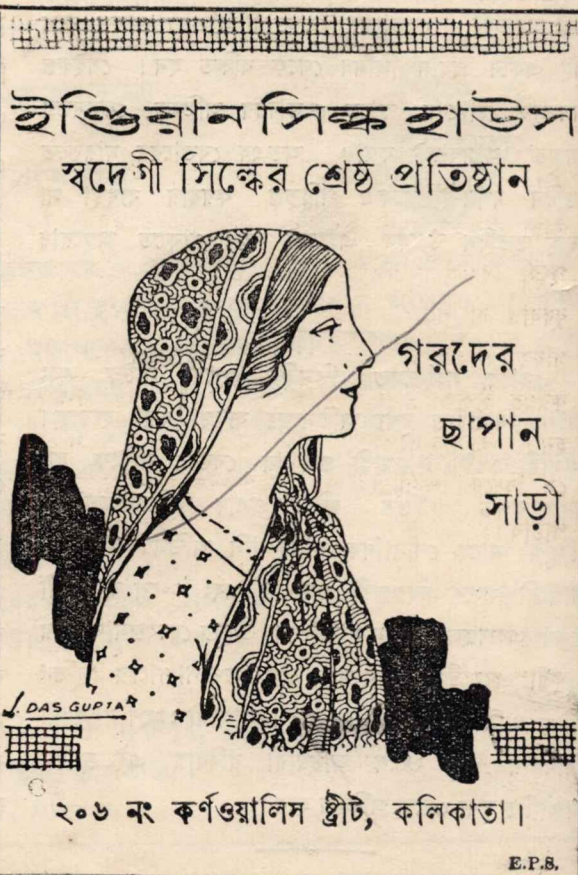 ইণ্ডিয়ান সিল্ক হাউস
স্বদেশী সিল্কের শ্রেষ্ঠ প্রতিষ্ঠান
গরদের
ছাপান
সাড়ী
DAS GUPTA
২০৬ নং কর্ণওয়ালিস ষ্ট্রীট, কলিকাতা।
E.P.S.